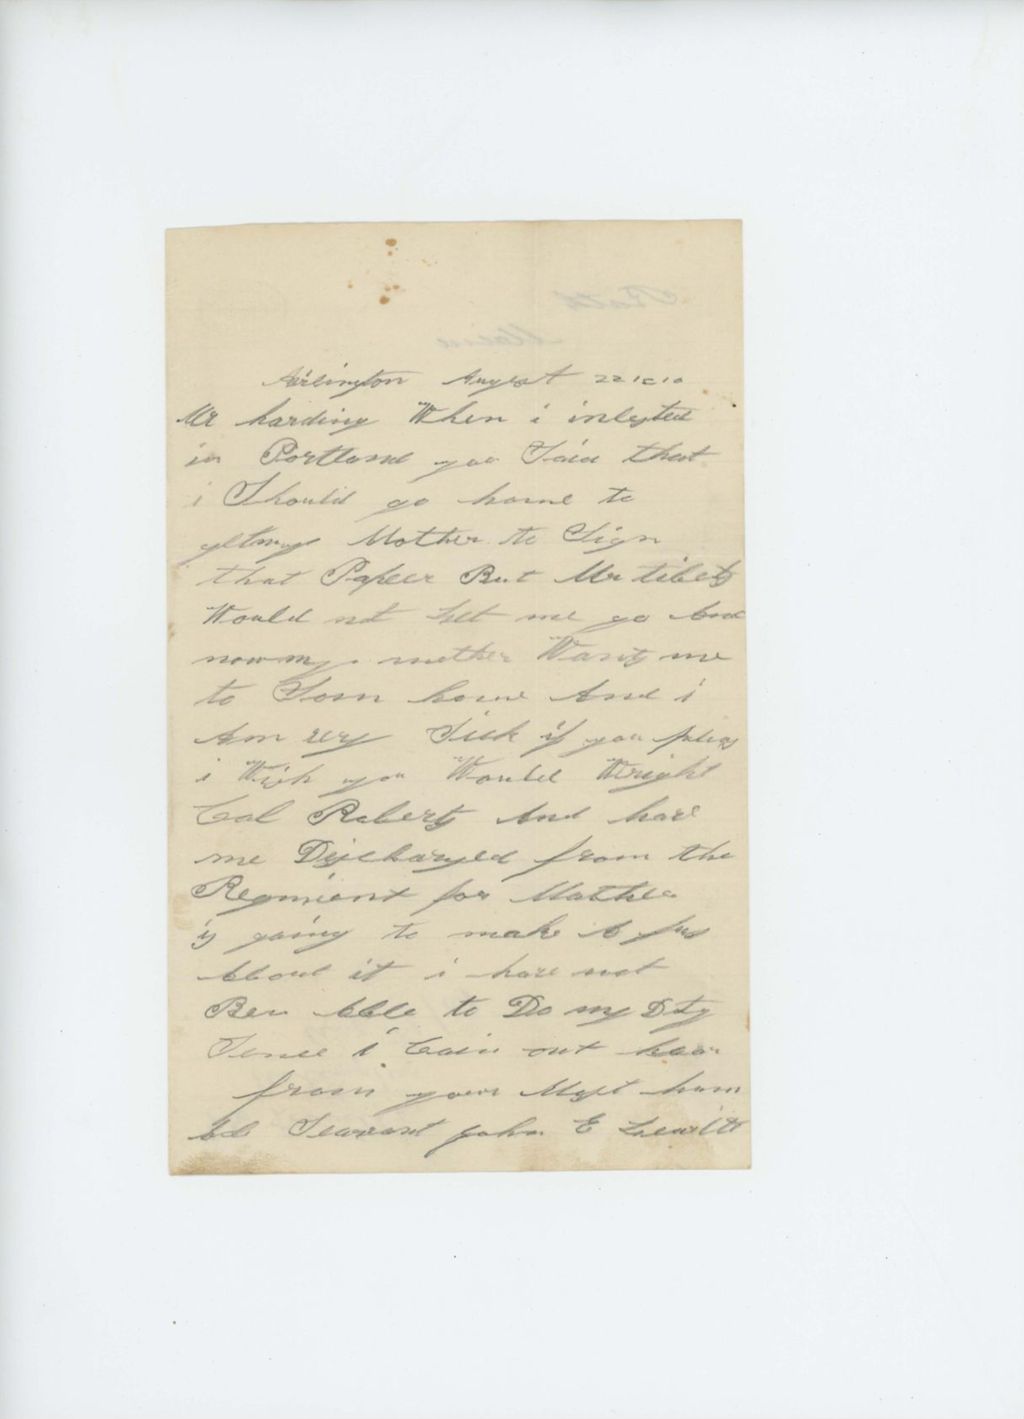 Arlington August 22
Mr harding When i inlysted
in Portland you Said that
i Should go home to
get my Mother to Sign
that Papeer But Mr tibets
Would not Let me go And
now my mother Wants me
to Com home And i
Am very Sick if you pleas
i Wish you Would Wright
Col Roberts And have
me Dischayed from the
Regmient for Mother
is going to make A fus
About it i have not
Ben Able to Do my Duty
Sence i Caim out hear
from your Most hum
bl Searvant John E Leavitt